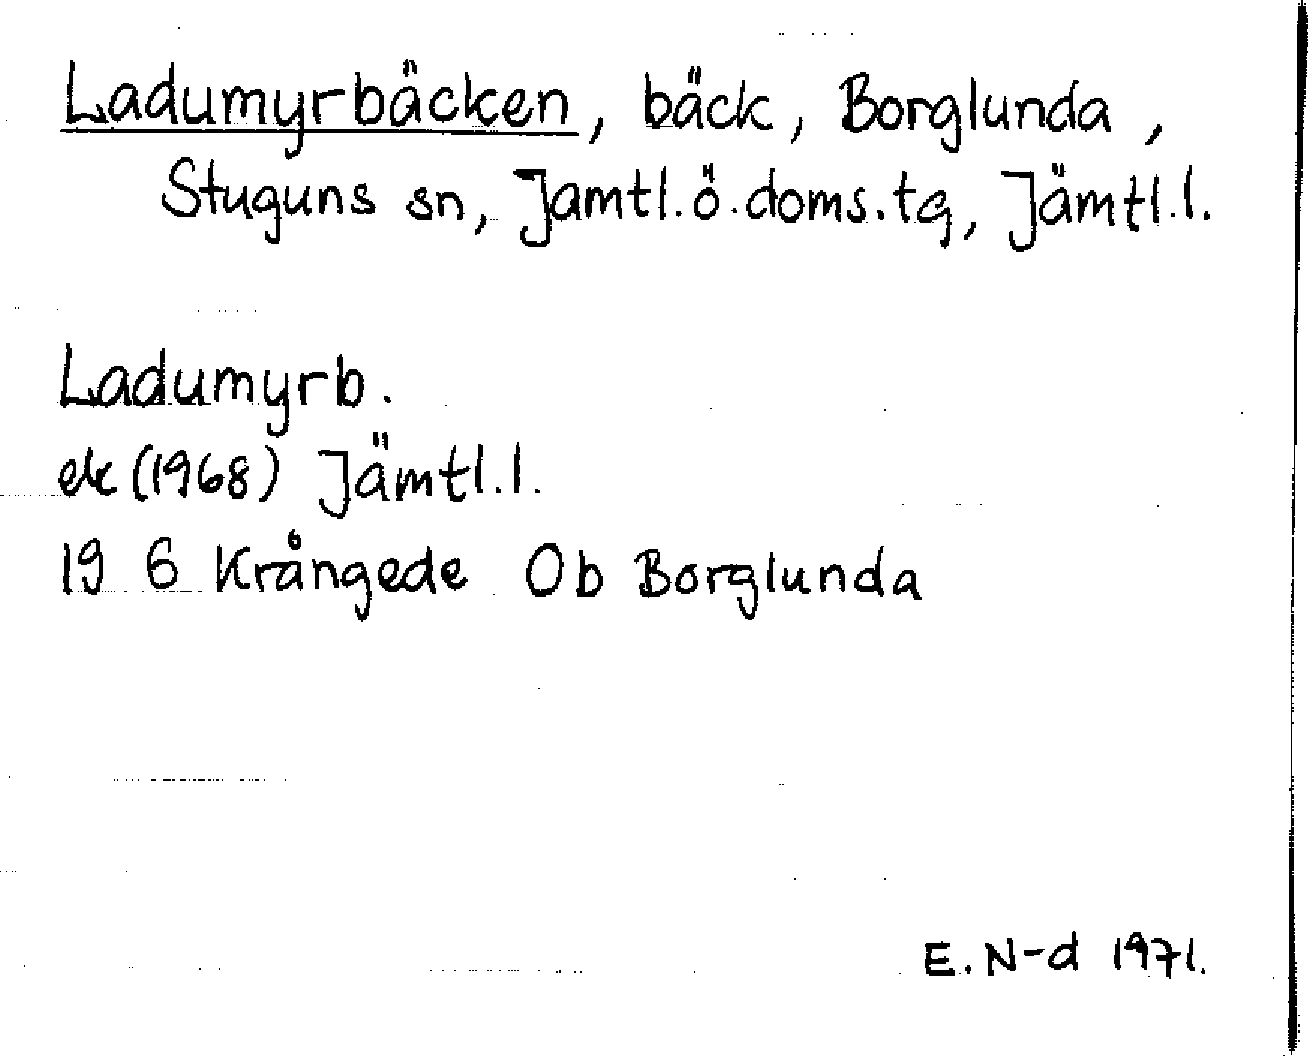 Ladumyrbäcken, bäck, Borglunda,
Stuguns sn, Jamtl.ö.doms.tg, Jämtl.l.
Ladumyrb.
ek (1968) Jämtl.l.
19 6 Krångede Ob Borglunda
E. N-d 1971.